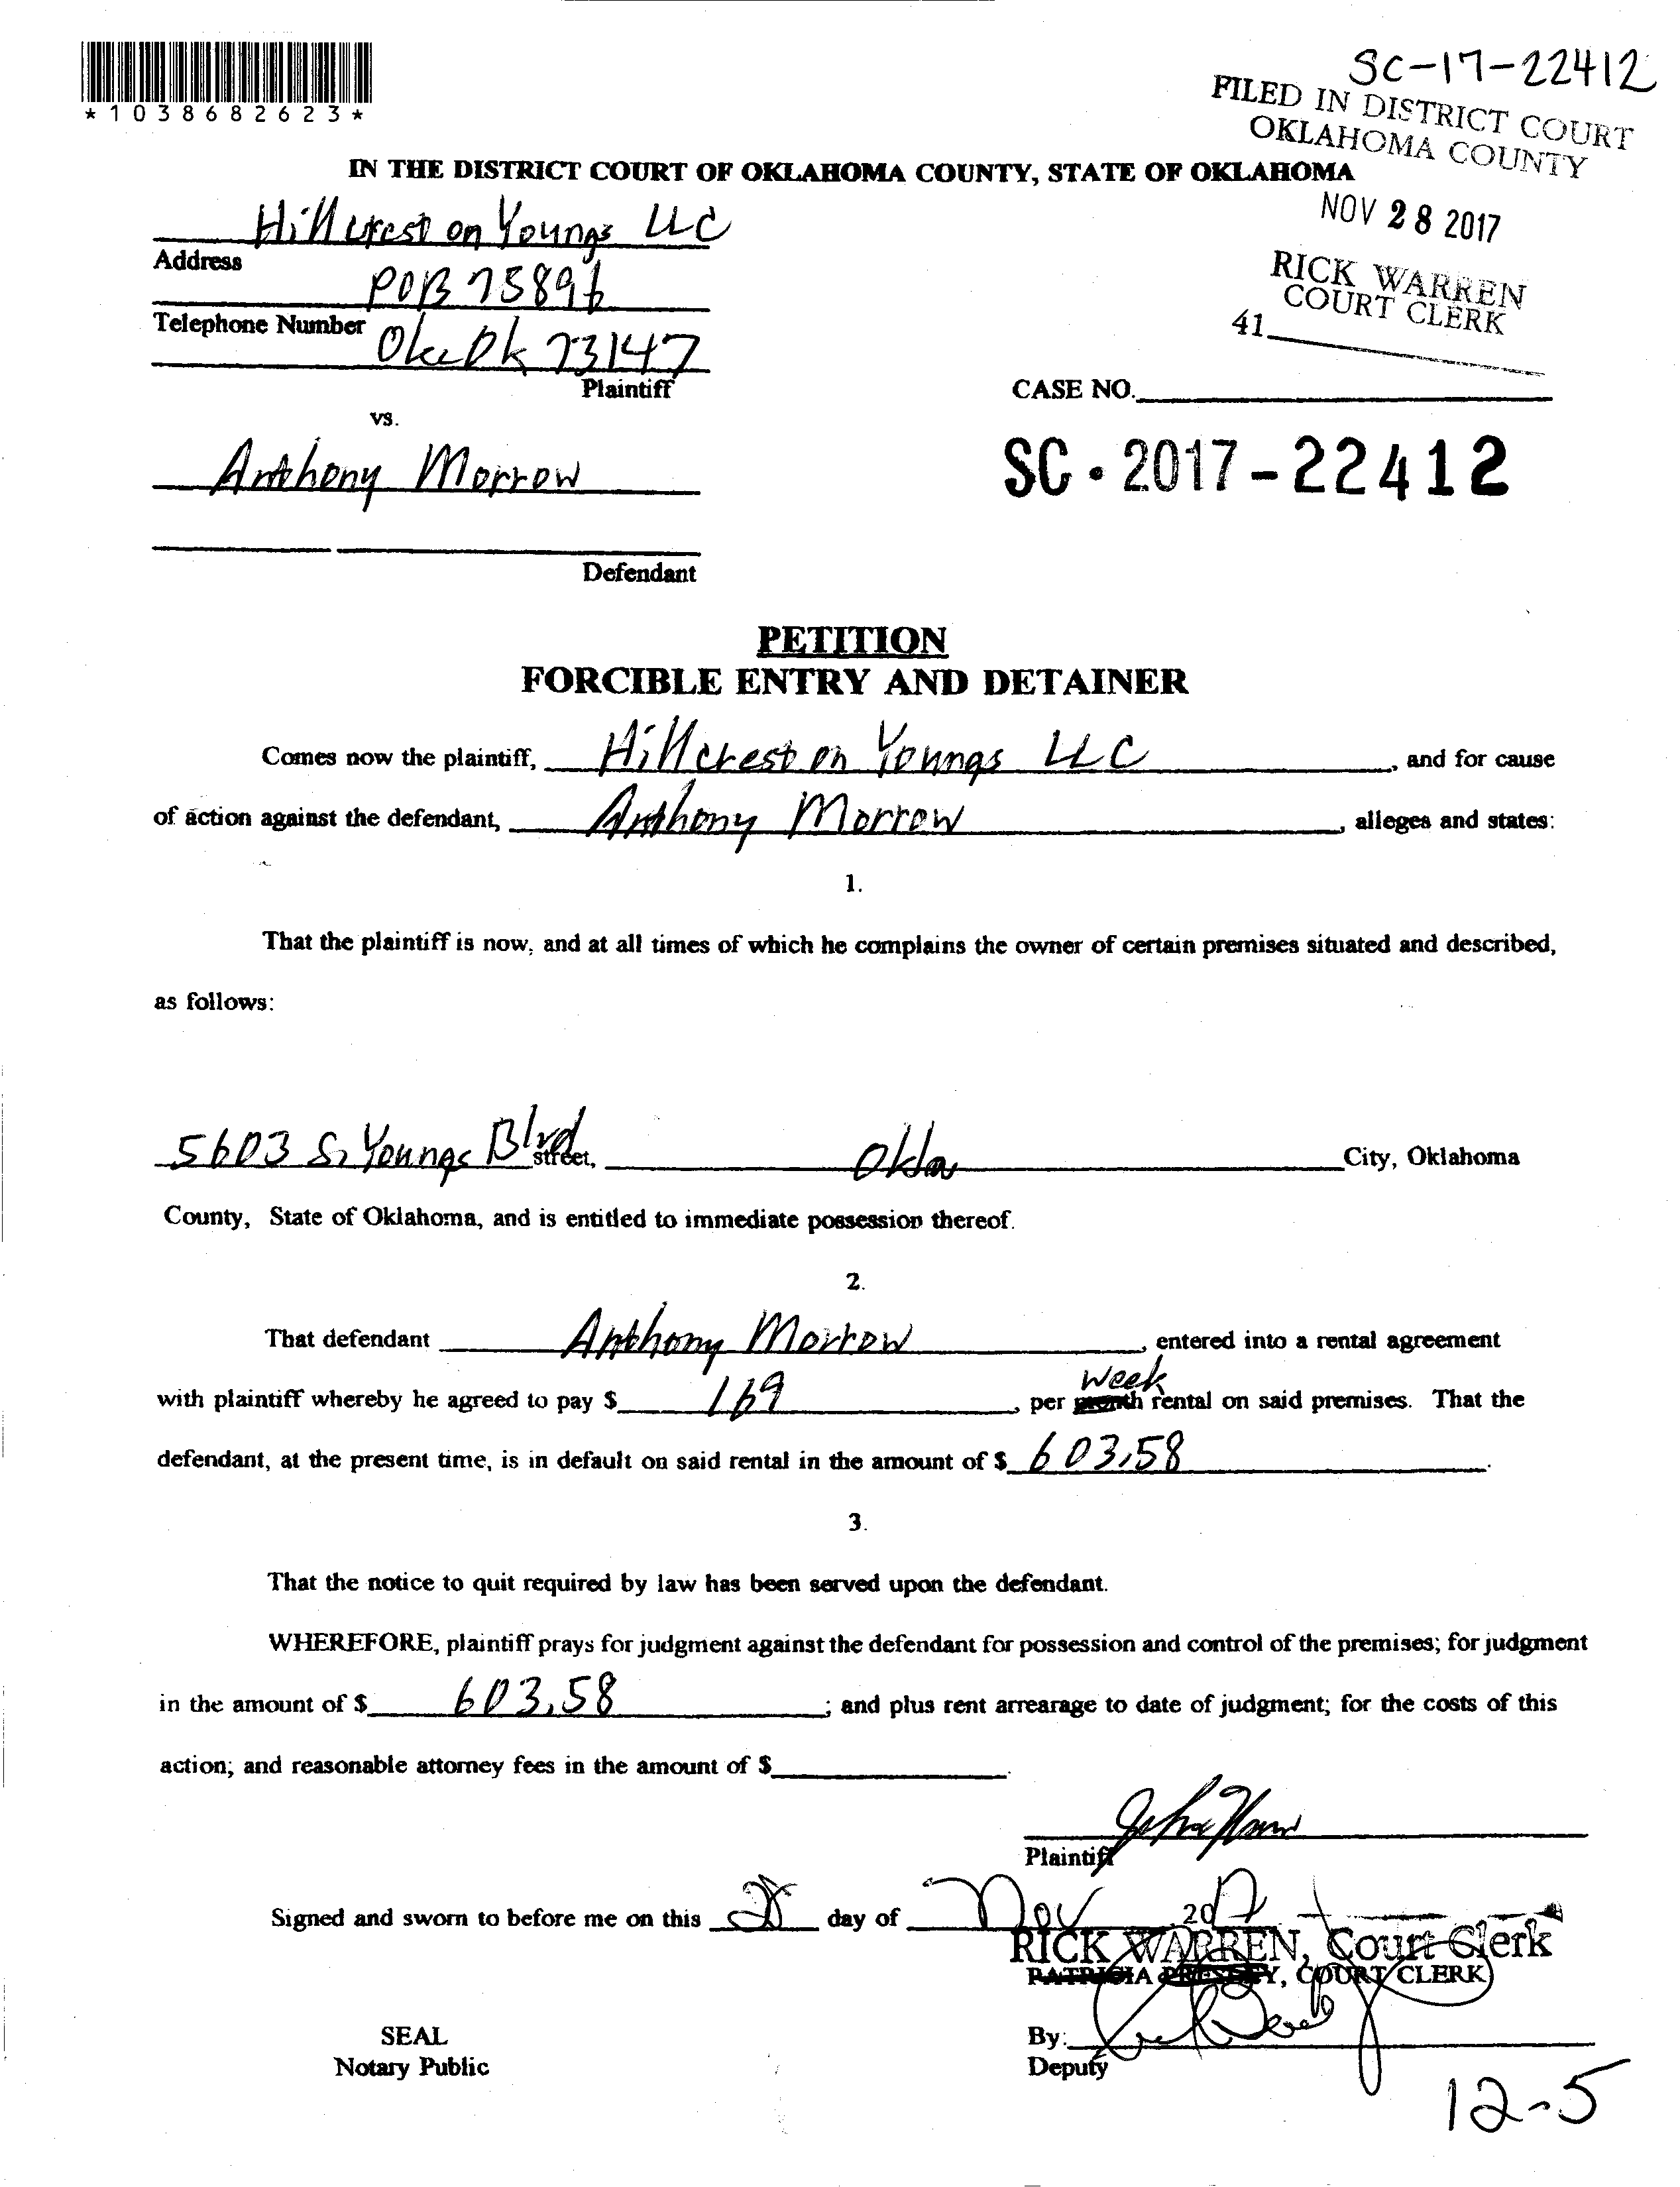 *1038682623*
SC-17-22412
FILED IN DISTRICT COURT
OKLAHOMA COUNTY
IN THE DISTRICT COURT OF OKLAHOMA COUNTY, STATE OF OKLAHOMA
NOV 28 2017
RICK WARREN
COURT CLERK
41
Hillcrest on Youngs LLC
Address
POB 75896
Telephone Number
Okc Ok 73147
Plaintiff
CASE NO.
vs.
Anthony Morrow
SC · 2017 - 22412
Defendant
PETITION
FORCIBLE ENTRY AND DETAINER
Comes now the plaintiff, Hillcrest on Youngs LLC, and for cause
of action against the defendant, Anthony Morrow, alleges and states:
1.
That the plaintiff is now, and at all times of which he complains the owner of certain premises situated and described,
as follows:
5603 S. Youngs Blvd street, Okla City, Oklahoma
County, State of Oklahoma, and is entitled to immediate possession thereof.
2.
That defendant Anthony Morrow, entered into a rental agreement
with plaintiff whereby he agreed to pay $ 169, per month week rental on said premises. That the
defendant, at the present time, is in default on said rental in the amount of $ 603.58.
3.
That the notice to quit required by law has been served upon the defendant.
WHEREFORE, plaintiff prays for judgment against the defendant for possession and control of the premises; for judgment
in the amount of $ 603.58; and plus rent arrearage to date of judgment; for the costs of this
action; and reasonable attorney fees in the amount of $
Plaintiff
Signed and sworn to before me on this 28 day of Nov 2017
RICK WARREN, Court Clerk
PATRICIA PRESLEY, COURT CLERK
SEAL
By:
Notary Public
Deputy
12-5